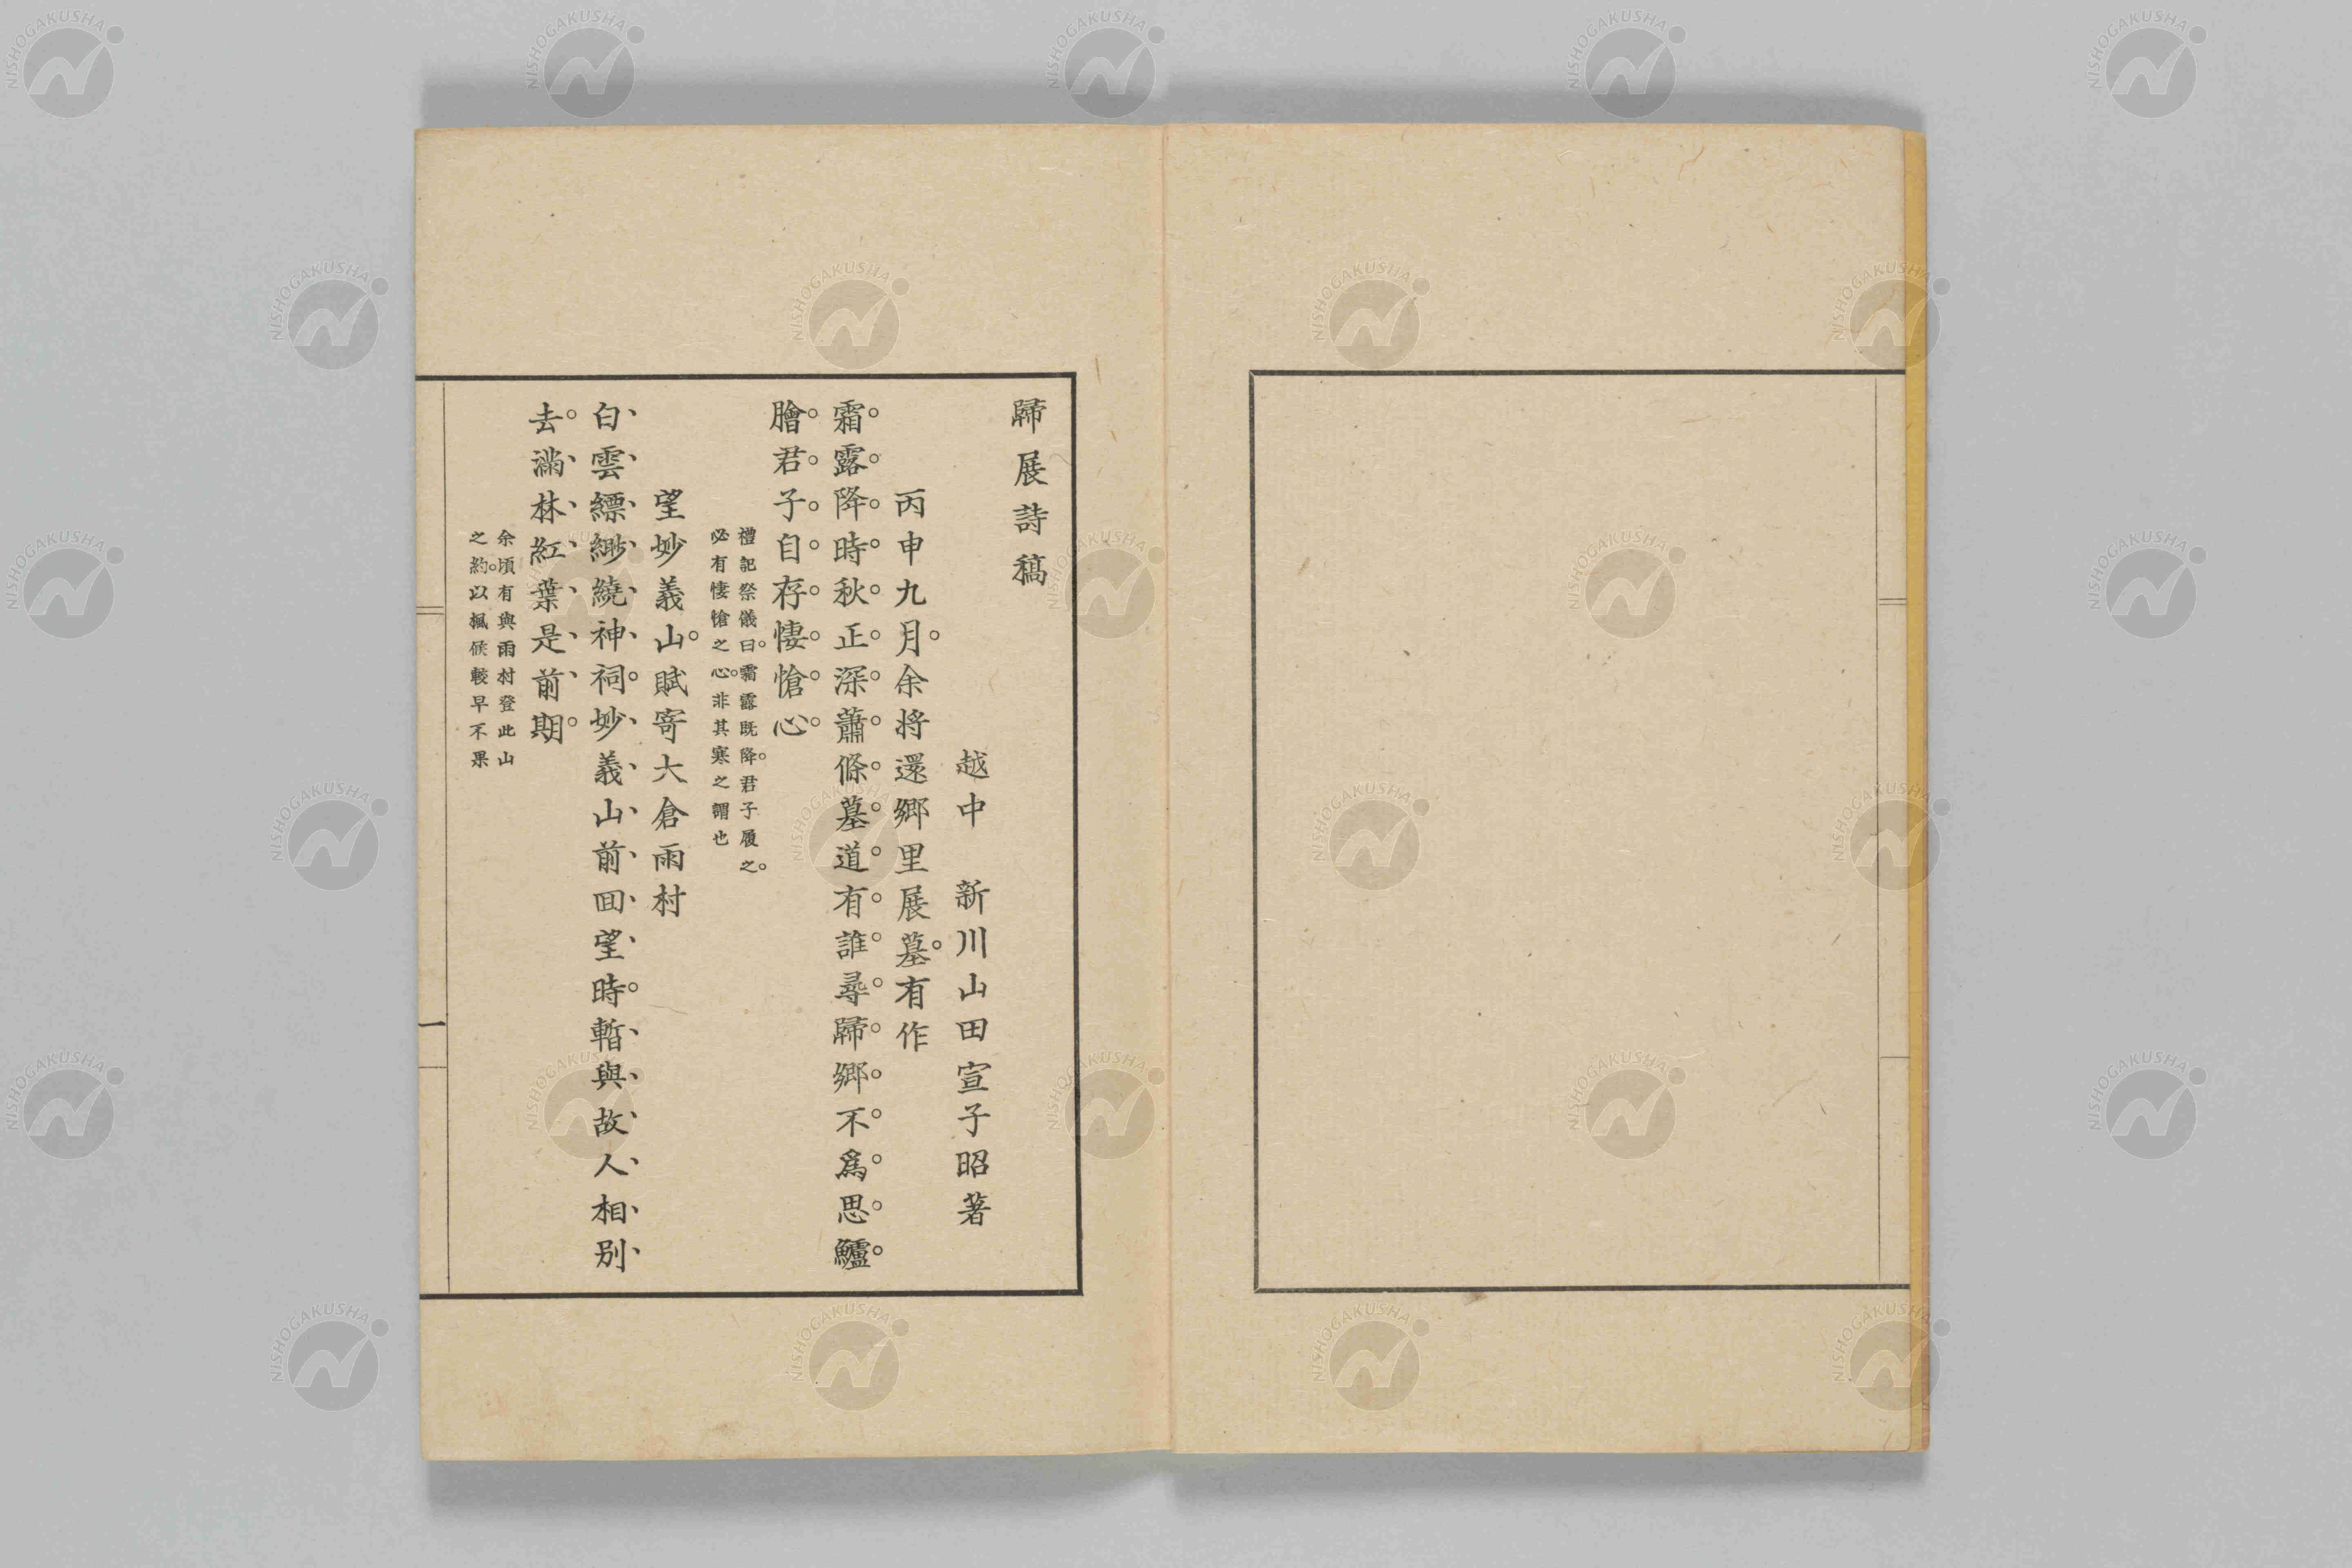 歸展詩稿
越中　新川山田宣子昭著
丙申九月。余将還郷里展墓。有作
霜露降時秋正深蕭條墓道有誰尋歸郷不爲思鱸
膾君子自存悽愴心
禮記祭儀曰。霜露既降。君子履之。
必有悽愴之心。非其寒之謂也
望妙義山。賦寄大倉雨村
白雲縹緲繞神祠妙義山前回望時暫與故人相別
去滿林紅葉是前期
余頃有與雨村登此山
之約。以楓候較早不果
一
NISHOGAKUSHA